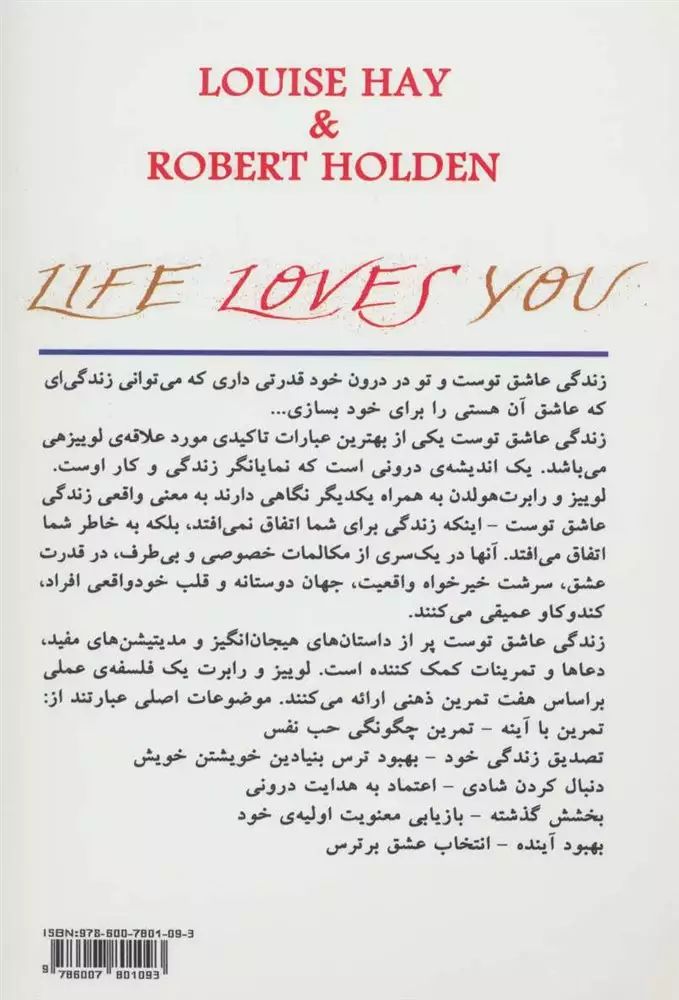 LOUISE HAY
&
ROBERT HOLDEN
LIFE LOVES YOU
زندگی عاشق توست و تو در درون خود قدرتی داری که می‌توانی زندگی‌ای
که عاشق آن هستی را برای خود بسازی...
زندگی عاشق توست یکی از بهترین عبارات تاکیدی مورد علاقه‌ی لوییزهی
می‌باشد. یک اندیشه‌ی درونی است که نمایانگر زندگی و کار اوست.
لوییز و رابرت‌هولدن به همراه یکدیگر نگاهی دارند به معنی واقعی زندگی
عاشق توست – اینکه زندگی برای شما اتفاق نمی‌افتد، بلکه به خاطر شما
اتفاق می‌افتد. آنها در یک‌سری از مکالمات خصوصی و بی‌طرف، در قدرت
عشق، سرشت خیرخواه واقعیت، جهان دوستانه و قلب خودواقعی افراد،
کندوکاو عمیقی می‌کنند.
زندگی عاشق توست پر از داستان‌های هیجان‌انگیز و مدیتیشن‌های مفید،
دعاها و تمرینات کمک کننده است. لوییز و رابرت یک فلسفه‌ی عملی
براساس هفت تمرین ذهنی ارائه می‌کنند. موضوعات اصلی عبارتند از:
تمرین با آینه – تمرین چگونگی حب نفس
تصدیق زندگی خود – بهبود ترس بنیادین خویشتن خویش
دنبال کردن شادی – اعتماد به هدایت درونی
بخشش گذشته – بازیابی معنویت اولیه‌ی خود
بهبود آینده – انتخاب عشق برترس
ISBN:978-600-7801-09-3
9 786007 801093